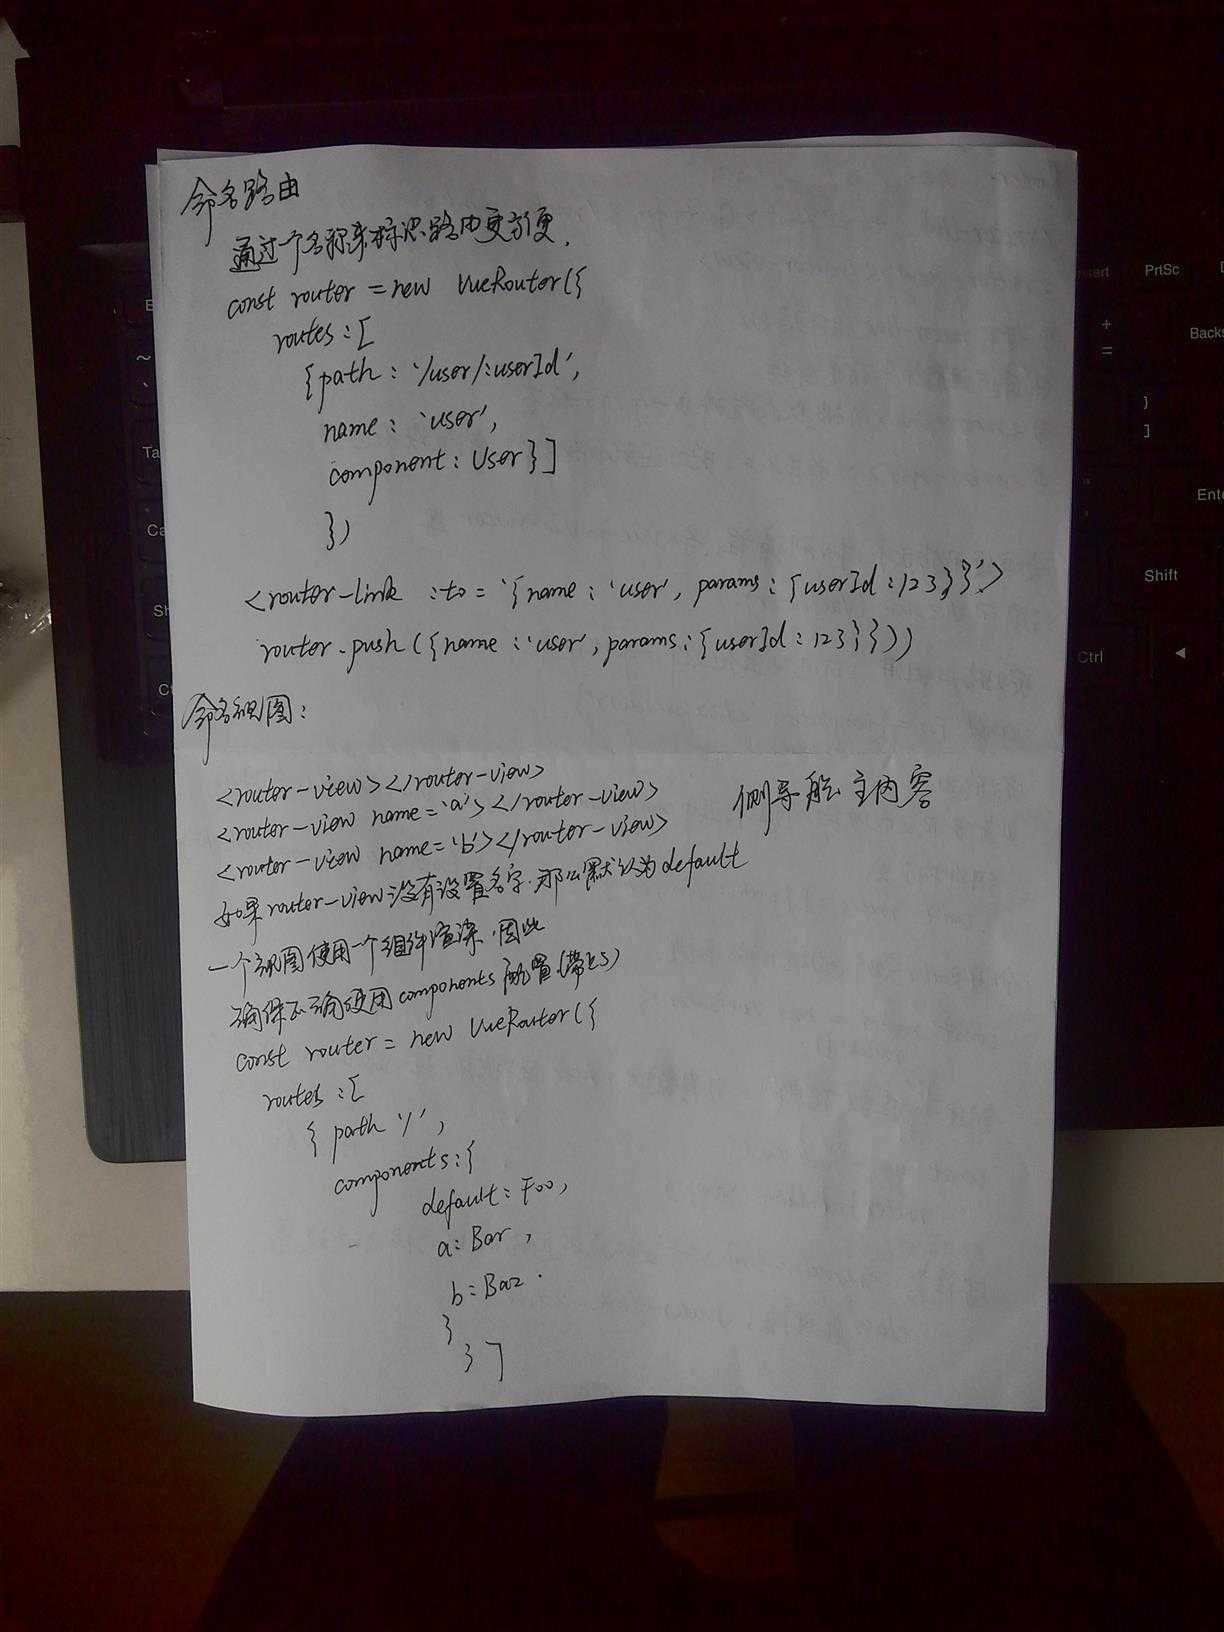 命名路由
通过一个名称来标识路由更方便.
const router = new VueRouter({
routes:[
{path: '/user/:userId',
name: 'user',
component: User}]
})
<router-link :to='{name:'user', params:{userId:123}}'>
router.push({name:'user',params:{userId:123}}))
命名视图:
<router-view></router-view>
<router-view name='a'></router-view> 侧导航 主内容
<router-view name='b'></router-view>
如果router-view没有设置名字.那么默认为default
一个视图使用一个组件渲染.因此
确保正确使用components配置(带上s)
const router = new VueRouter({
routes:[
{ path '/',
components:{
default: Foo,
a: Bar,
b: Baz.
}
}]
PrtSc
Backs
+
=
}
]
Ente
Shift
Ctrl
~
Ta
Ca
Sh